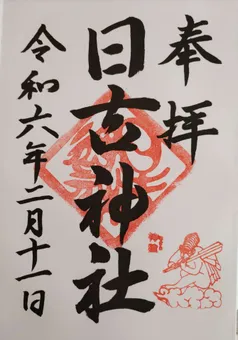 奉拝
日古神社
令和六年二月十一日